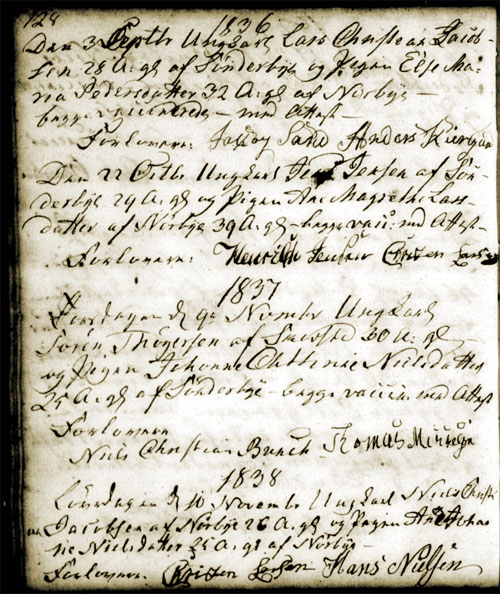 128
1836
Den 3 Septbr Ungkarl Lars Christian Jacob-
sen 28 A. gl af Sönderbye og Pigen Else Ma-
ria Pedersdatter 32 A. gl af Nörbye -
begge vaccinerede - med Attest -
Forlovere: Sand Anders Kiergaar
Den 22 Octbr Ungkarl Jens Jensen af Sön-
derbye 29 A. gl og Pigen Ane Magrethe Lars-
datter af Nörbye 39 A. gl - begge vacc: med Attest -
Forlovere: Henrich Cristen Larsen
1837
Löverdagen d. 9 Novmbr Ungkarl
Sören Thögersen af 30 A. gl
og Pigen Johanne Cathrine Nielsdatter
25 A. gl af Sönderbye - begge vaccin. med Attest
Forlovere
Niels Christian Bunch Tomas
1838
Löverdagen d. 10 Novembr Ungkarl Niels Christi
an Jacobsen af Nörbye 26 A. gl og Pigen Ane Johan
ne Nielsdatter 25 A. gl af Nörbye -
Forlovere: Cristen Larsen Hans Nielsen